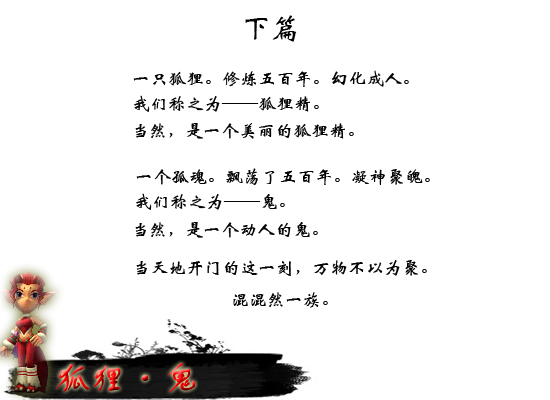 下篇
一只狐狸。修炼五百年。幻化成人。
我们称之为——狐狸精。
当然，是一个美丽的狐狸精。
一个孤魂。飘荡了五百年。凝神聚魄。
我们称之为——鬼。
当然，是一个动人的鬼。
当天地开门的这一刻，万物不以为聚。
混混然一族。
狐狸·鬼